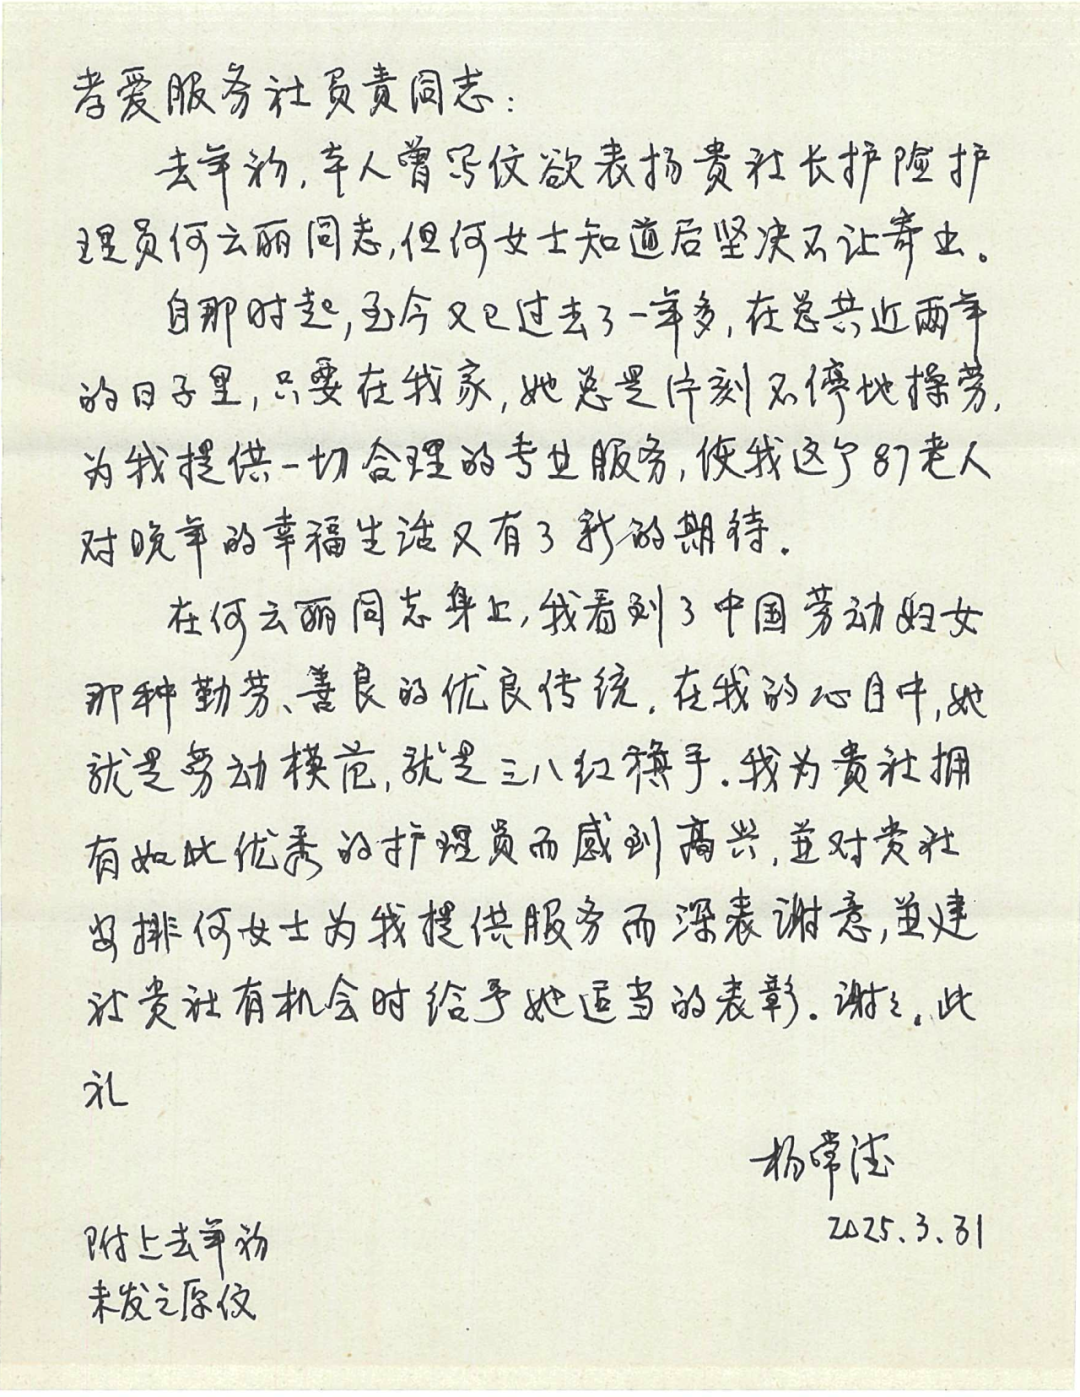 孝爱服务社负责同志:
去年初,本人曾写信欲表扬贵社长护险护
理员何云丽同志,但何女士知道后坚决不让寄出。
自那时起,至今又已过去了一年多,在总共近两年
的日子里,只要在我家,她总是片刻不停地操劳,
为我提供一切合理的专业服务,使我这个87老人
对晚年的幸福生活又有了新的期待。
在何云丽同志身上,我看到了中国劳动妇女
那种勤劳、善良的优良传统。在我的心目中,她
就是劳动模范,就是三八红旗手。我为贵社拥
有如此优秀的护理员而感到高兴,並对贵社
安排何女士为我提供服务而深表谢意,並建
社贵社有机会时给予她适当的表彰。谢々。此
礼
杨常
2025.3.31
附上去年初
未发之原信